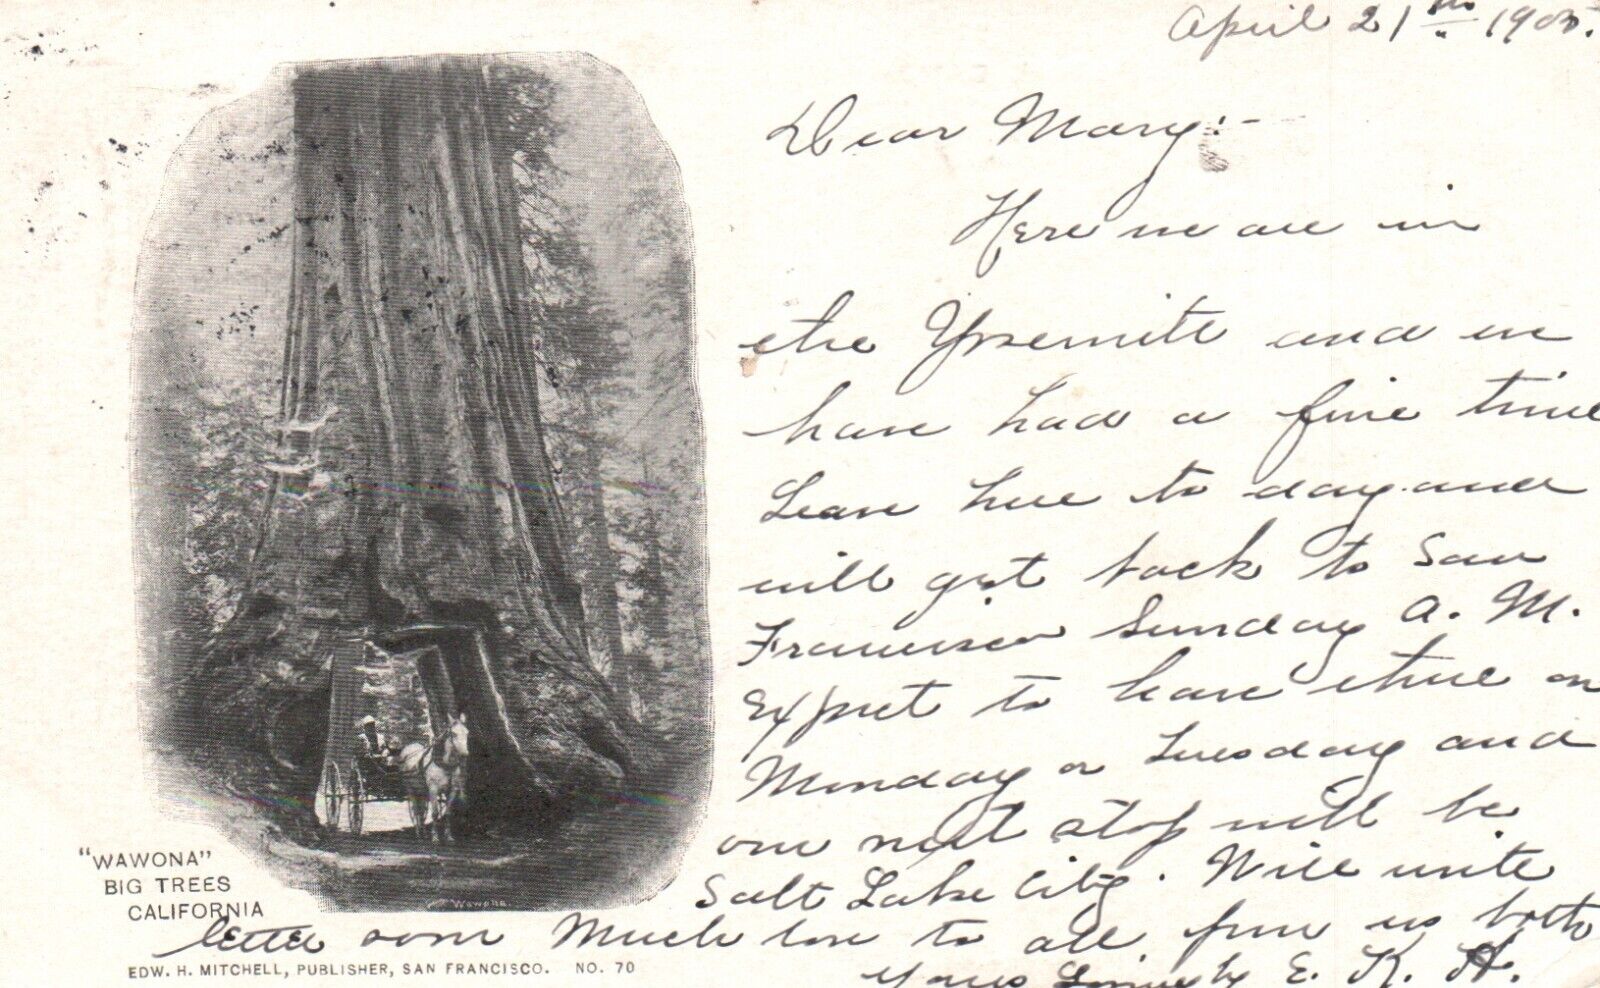 April 21st 1905.
Dear Mary:-
Here we are in
the Yosemite and we
have had a fine time
Leave here to day and
will get back to San
Francisco Sunday A. M.
Expect to leave there on
Monday or Tuesday and
our next stop will be
Salt Lake City. Will write
letter soon Much love to all from us both
Yours Lovingly E. K. H.
"WAWONA"
BIG TREES
CALIFORNIA
Wawona.
EDW. H. MITCHELL, PUBLISHER, SAN FRANCISCO. NO. 70